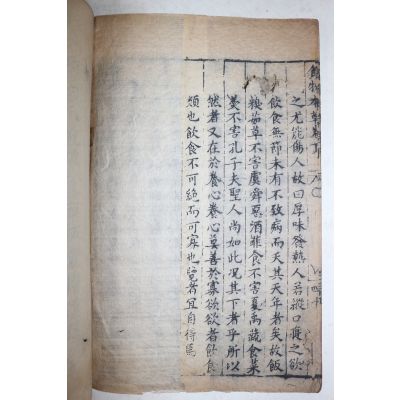 之尤能傷人故曰厚味發熱人若縱口腹之欲
飲食無節未有不致病而夭其天年者矣故飯
糗茹草不害虞舜惡酒菲食不害夏禹蔬食菜
羹不害孔子夫聖人尚如此況其下者乎所以
然者又在於養心養心莫善於寡欲欲者飲食
類也飲食不可絶而可寡也覽者宜自得焉